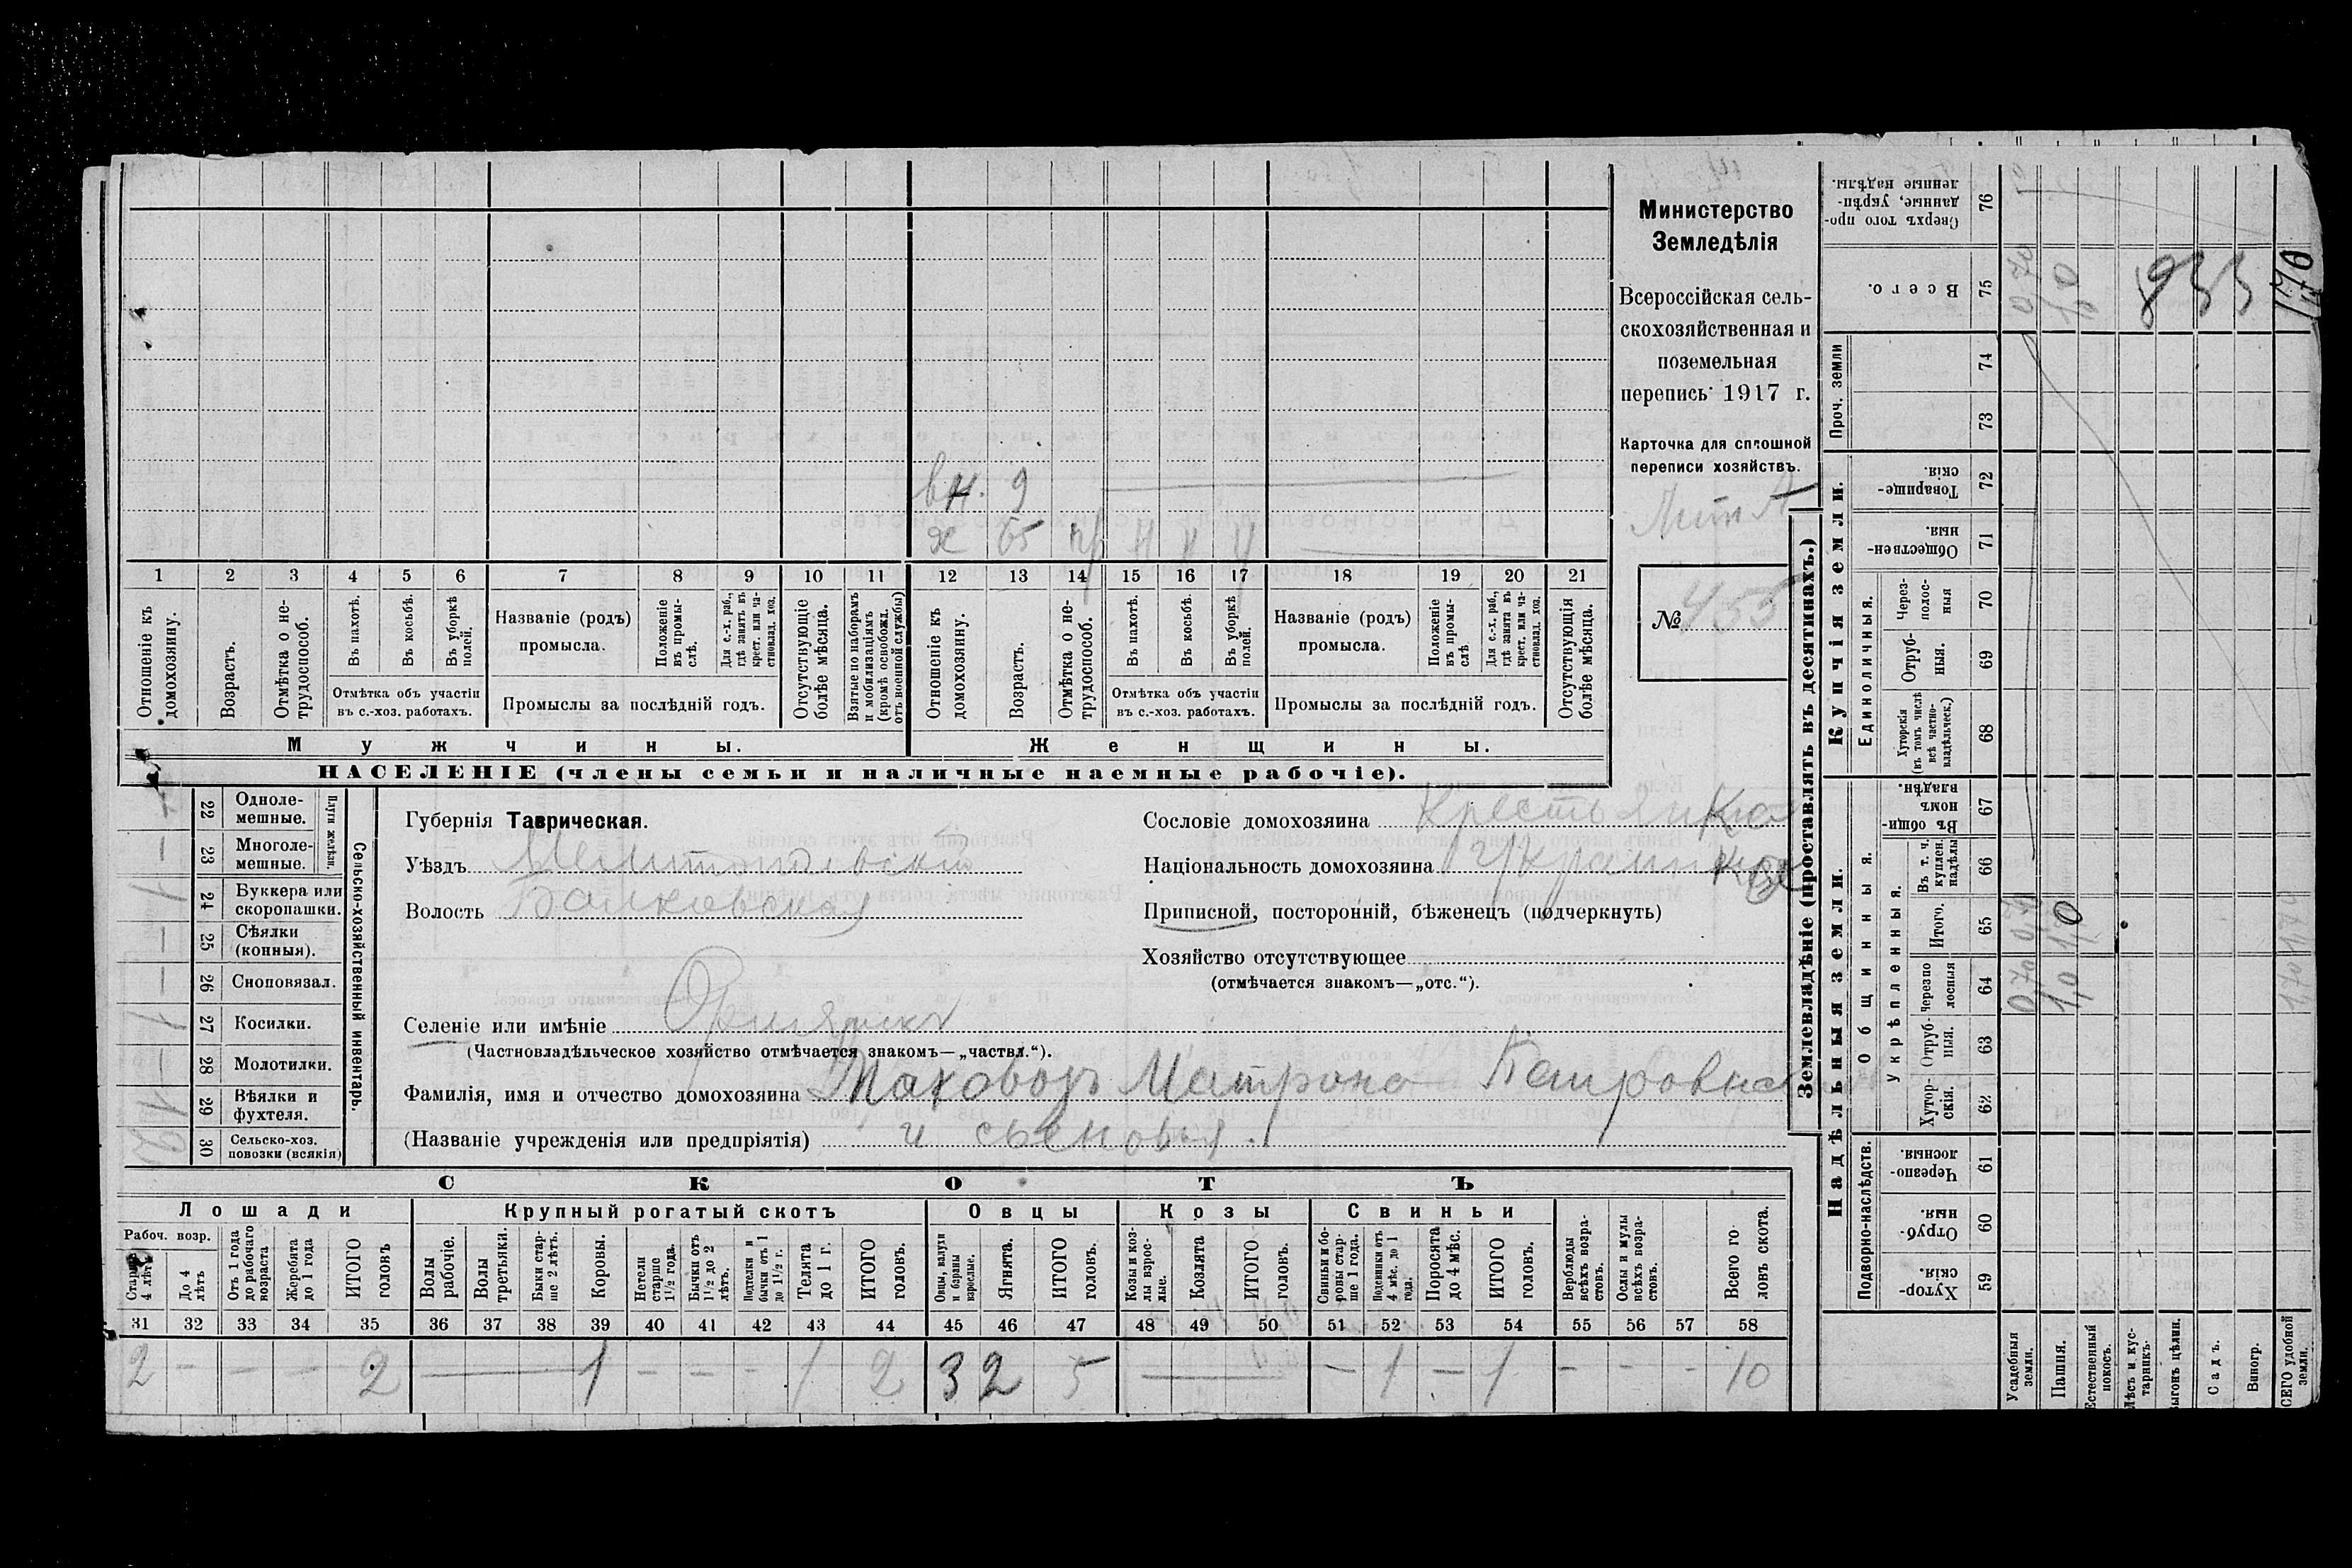 Министерство
Земледѣлія
Всероссійская сель-
скохозяйственная и
поземельная
перепись 1917 г.
Карточка для сплошной
переписи хозяйствъ.
Лит А
№ 455
вн. 9
ж 65 пр н н н
1 2 3 4 5 6 7 8 9 10 11 12 13 14 15 16 17 18 19 20 21
Отношеніе къ домохозяину.
Возрастъ.
Отмѣтка о не-трудоспособ.
Въ пахотѣ.
Въ косьбѣ.
Въ уборкѣ полей.
Отмѣтка объ участіи
въ с.-хоз. работахъ.
Названіе (родъ)
промысла.
Положеніе въ промы-слѣ.
Для с.-х. раб., гдѣ занятъ въ крест. или ча-стновлад. хоз.
Промыслы за послѣдній годъ.
Отсутствующіе болѣе мѣсяца.
Взятые по наборамъ и мобилизаціямъ (кромѣ освобожд. отъ военной службы)
Отношеніе къ домохозяину.
Возрастъ.
Отмѣтка о не-трудоспособ.
Въ пахотѣ.
Въ косьбѣ.
Въ уборкѣ полей.
Отмѣтка объ участіи
въ с.-хоз. работахъ.
Названіе (родъ)
промысла.
Положеніе въ промы-слѣ.
Для с.-х. раб., гдѣ занятъ въ крест. или ча-стновлад. хоз.
Промыслы за послѣдній годъ.
Отсутствующія болѣе мѣсяца.
Мужчины.
Женщины.
НАСЕЛЕНІЕ (члены семьи и наличные наемные рабочіе).
Сельско-хозяйственный инвентарь.
Плуги желѣзн.
22 Одноле-мешные.
— 23 Многоле-мешные.
1 24 Буккера или скоропашки.
— 25 Сѣялки (конныя).
— 26 Сноповязал.
1 27 Косилки.
— 28 Молотилки.
1 29 Вѣялки и фухтеля.
2 30 Сельско-хоз. повозки (всякія)
Губернія Таврическая.
Уѣздъ Мелитопольскій
Волость Балковская
Селеніе или имѣніе
(Частновладѣльческое хозяйство отмѣчается знакомъ—„частвл.“).
Фамилія, имя и отчество домохозяина Маховодъ Матрона Петровна
(Названіе учрежденія или предпріятія) и сыновья.
Сословіе домохозяина Крестьянка
Національность домохозяина Украинка
Приписной, посторонній, бѣженецъ (подчеркнуть)
Хозяйство отсутствующее
(отмѣчается знакомъ—„отс.“).
СКОТЪ
Лошади
Крупный рогатый скотъ
Овцы
Козы
Свиньи
Рабоч. возр.
Старше 4 лѣтъ
До 4 лѣтъ
Отъ 1 года до рабочаго возраста
Жеребята до 1 года
ИТОГО головъ
Волы рабочіе.
Волы третьяки.
Быки стар-ше 2 лѣтъ.
Коровы.
Нетели старше 1½ года.
Бычки отъ 1½ до 2 лѣтъ.
Подтелки и бычки отъ 1 до 1½ г.
Телята до 1 г.
ИТОГО головъ.
Овцы, валухи и бараны взрослые.
Ягнята.
ИТОГО головъ.
Козы и коз-лы взрос-лые.
Козлята
ИТОГО головъ.
Свиньи и бо-ровы стар-ше 1 года.
Подсвинки отъ 4 мѣс. до 1 года.
Поросята до 4 мѣс.
ИТОГО головъ.
Верблюды всѣхъ возра-стовъ.
Ослы и мулы всѣхъ возра-стовъ.
Всего го-ловъ скота.
31 32 33 34 35 36 37 38 39 40 41 42 43 44 45 46 47 48 49 50 51 52 53 54 55 56 57 58
2 — — — 2 — 1 — — — 1 2 3 2 5 — — 1 — 1 — — — 10
Землевладѣніе (проставлять въ десятинахъ.)
Надѣльныя земли.
Купчія земли.
Проч. земли
Подворно-наслѣдств.
Общинныя.
Укрѣпленныя.
Единоличныя.
Хутор-скія. 59
Отруб-ныя. 60
Черезпо-лосныя. 61
Хутор-скія. 62
Отруб-ныя. 63
Черезпо-лосныя 64
Итого. 65
Въ т. ч. куплен. надѣлы 66
Въ общин-номъ владѣн. 67
Хуторскія (въ томъ числѣ всѣ частно-владѣльческ.) 68
Отруб-ныя. 69
Через-полос-ныя 70
Обществен-ныя. 71
Товарище-скія. 72
73
74
Всего. 75
Сверхъ того про-данные, укрѣп-ленные надѣлы. 76
Усадебныя земли. 0,70 0,70 0,70
Пашня. 1,0 1,0 1,0
Естественный покосъ.
Лѣсъ и кус-тарникъ.
Выгонъ цѣлин.
Садъ.
Виногр.
ВСЕГО удобной земли. 1,70 1,70 1,70